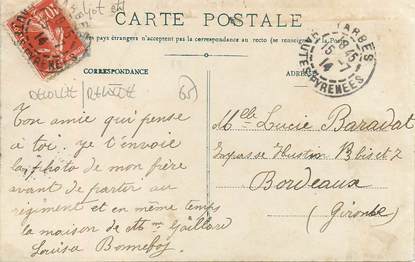 CARTE POSTALE
pays étrangers n'acceptent pas la correspondance au recto (se renseigner
CORRESPONDANCE
TARBES
18 45
15 -1
14
HAUTES-PYRENEES
DÉCOLLÉE / RECOLLÉE
65
Ton amie qui pense
à toi. je t'envoie
la photo de mon frère
avant de partir au
régiment et en même temps
la maison de Mme Gaillard
Louisa Bonnefoy
Melle Lucie Baradat
Impasse Hustin B bis et 7
Bordeaux
(Gironde)